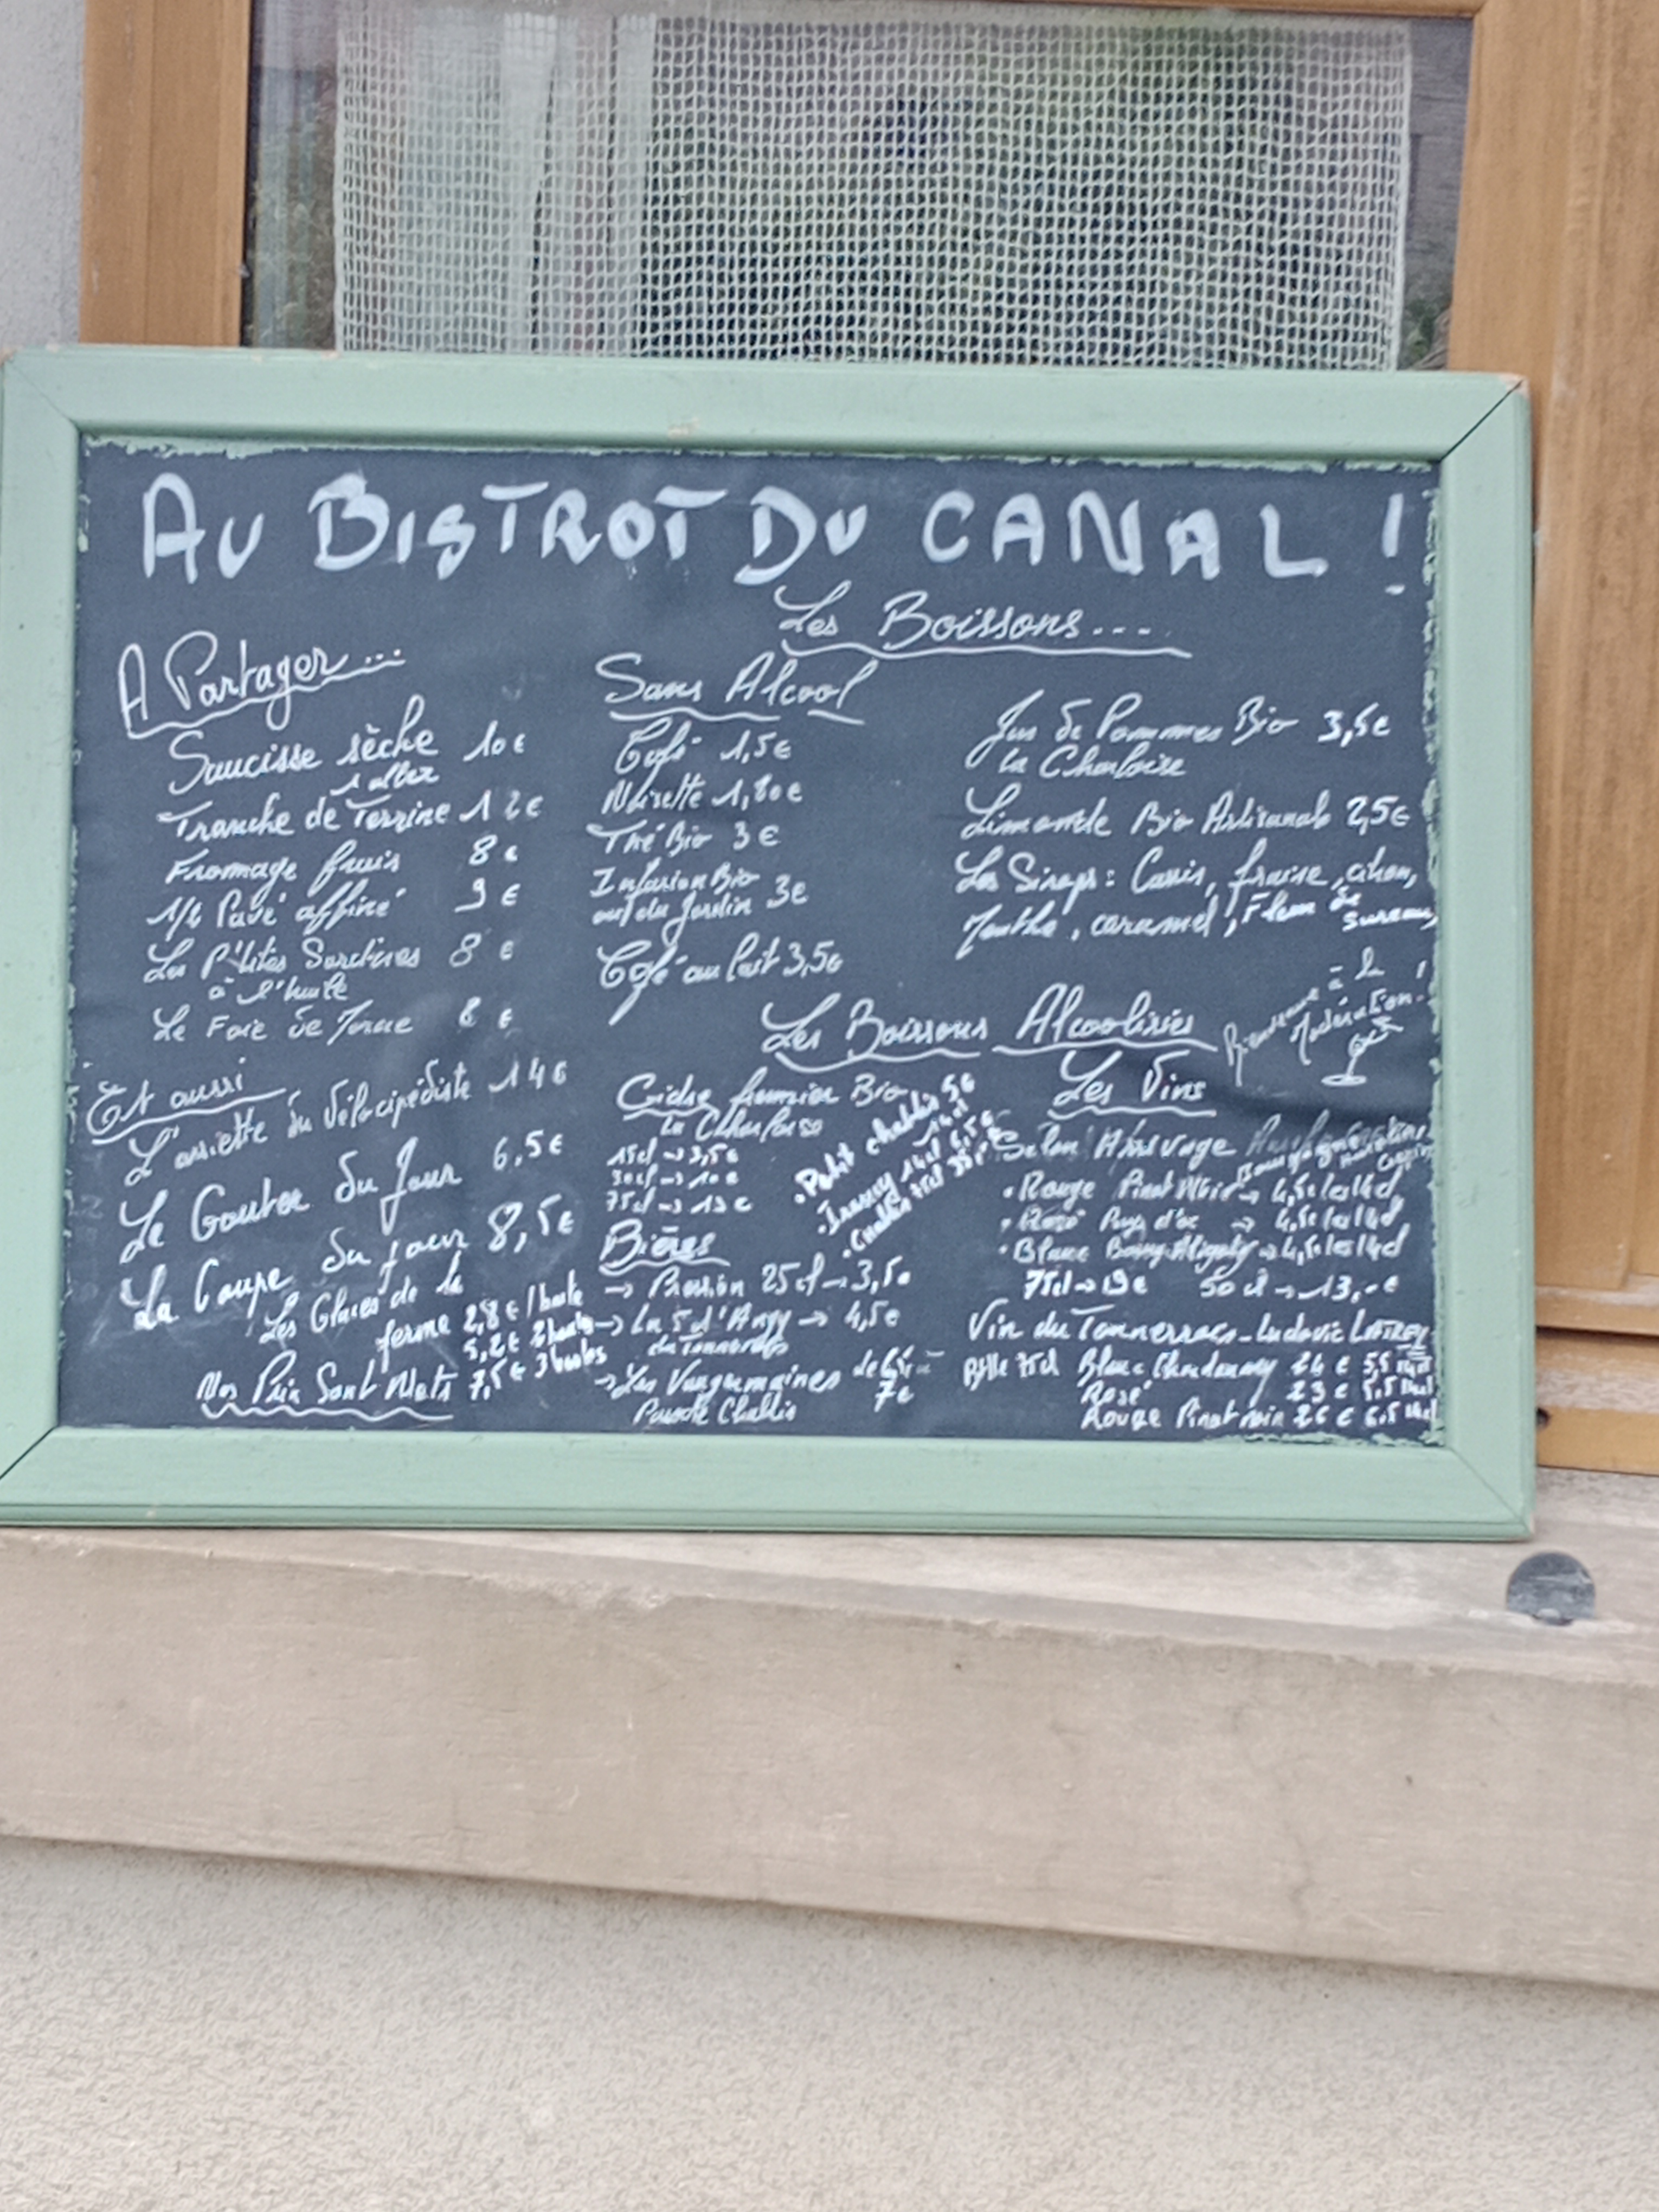 AU BISTROT DU CANAL !
A Partager...
Saucisse sèche 10€
Tranche de Terrine 12€
Fromage frais 8€
1/4 Pavé affiné 9€
Les P'tites Sardines 8€
à l'huile
Le Foie de Morue 8€
Et aussi
L'assiette du Vélocipédiste 14€
Le Gouter du Jour 6,5€
La Coupe du jour 8,5€
Les Glaces de la
ferme 2,8€/1 boule
5,2€ 2 boules
7,5€ 3 boules
Nos Prix Sont Nets
Les Boissons...
Sans Alcool
Café 1,5€
Noisette 1,80€
Thé Bio 3€
Infusion Bio
du Jardin 3€
Café au lait 3,5€
Jus de Pommes Bio 3,5€
La Chaloise
Limonade Bio Artisanale 2,5€
Les Sirops : Cassis, fraise, citron,
Menthe, caramel, Fleur de
Sureau
Les Boissons Alcoolisées
à la
Modération !
Cidre fermier Bio
15cl → 3,5€
75cl → 13€
• Petit chablis 5€
14cl
• Irancy 14cl 6,5€
• Chablis 75cl
Bières
→ Pression 25cl → 3,5€
→ → 4,5€
du Tonnerrois
→ Les Vaugermaines
7€
Chablis
Les Vins
Selon Arrivage
• Rouge Pinot Noir → 4,5€ les 14cl
• Rosé Pays d'oc → 4,5€ les 14cl
• Blanc Bourg Aligoté → 4,5€ les 14cl
75cl → 19€ 50cl → 13,-€
Vin du Tonnerrois - Ludovic
Blle 75cl Blanc Chardonnay 24€ 5,5 14cl
Rosé 23€ 5,5 14cl
Rouge Pinot noir 26€ 14cl